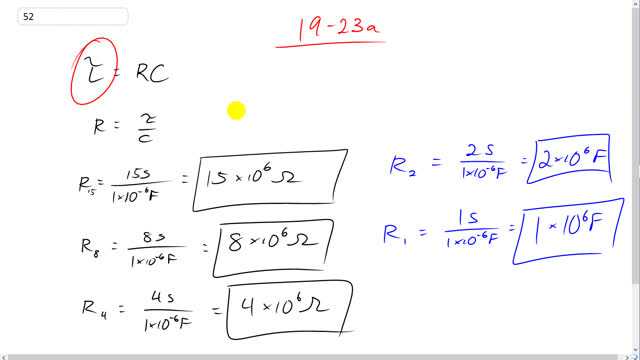 52
19-23a
τ = RC
R = τ/C
R₁₅ = 15s/1×10⁻⁶F = 15×10⁶Ω
R₈ = 8s/1×10⁻⁶F = 8×10⁶Ω
R₄ = 4s/1×10⁻⁶F = 4×10⁶Ω
R₂ = 2s/1×10⁻⁶F = 2×10⁶F
R₁ = 1s/1×10⁻⁶F = 1×10⁶F